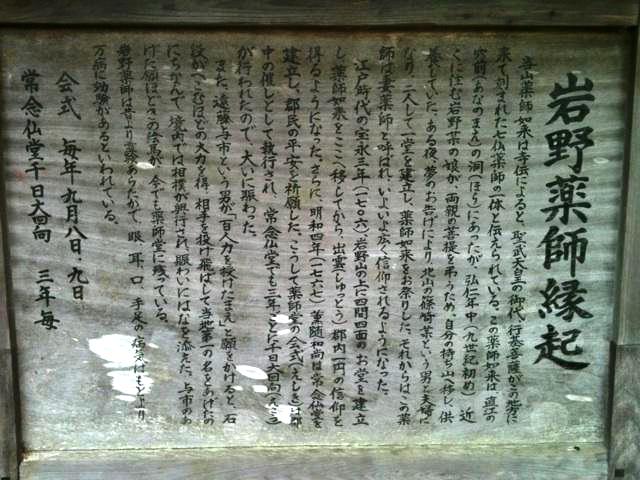 岩野薬師縁起
当山薬師如来は寺伝によると、聖武天皇の御代、行基菩薩がこの地方に
来て刻まれた七仏薬師の一体と伝えられている。この薬師如来は直江の
穴前(あなのまえ)の洞(ほら)にあったが、弘仁年中(九世紀初め)近
くに住む岩野某の娘が、両親の菩提を弔うため、自分の持山へ移し、供
養していた。ある夜、夢のお告げにより、北山の篠崎某という男と夫婦に
なり、二人して一堂を建立し、薬師如来をお祭りした。それからはこの薬
師は妻薬師と呼ばれ、いよいよ広く信仰されるようになった。
江戸時代の宝永三年(一七〇六)岩野山の上に四間四面のお堂を建立
し、薬師如来をここへ移してから、出雲(しゅっとう)郡内一円の信仰を
得るようになった。さらに、明和四年(一七六七)薫随和尚は常念仏堂を
建立し、郡民の平安を祈願した。こうして薬師堂の会式(えしき)は郡
中の催しとして執行され、常念仏堂でも三年ごとに千日大回向(えこう)
が行われたので、大いに賑わった。
また、遠藤与市という男が「百人力を授けたまえ」と願をかけると、石
段がへこむほどの大力を得、相手を投げ飛ばして当地第一の名をあげたの
にちなんで、境内では相撲が興行され、賑わいにはなを添えた。与市のあ
げた額ほどの絵馬が、今でも薬師堂に残っている。
岩野薬師は昔より霊験あらたかで、眼、耳、口、手足の病気はもとより
万病に効験があるといわれている。
会式　毎年　九月八日、九日
常念仏堂千日大回向　三年毎